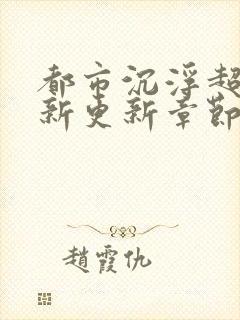 都市沉浮超
新更新章節
趙霞仇